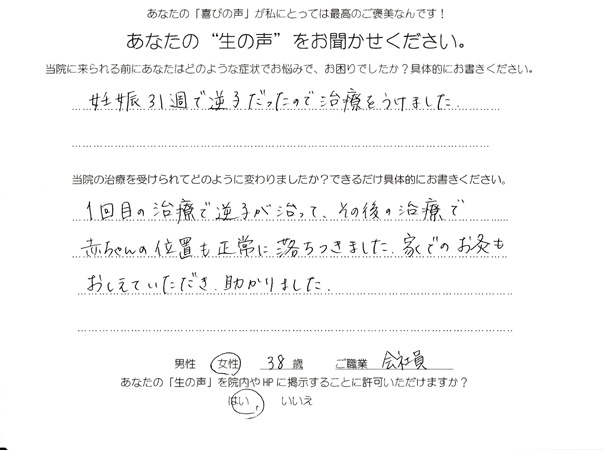 あなたの「喜びの声」が私にとっては最高のご褒美なんです！
あなたの“生の声”をお聞かせください。
当院に来られる前にあなたはどのような症状でお悩みで、お困りでしたか？具体的にお書きください。
妊娠31週で逆子だったので治療をうけました.
当院の治療を受けられてどのように変わりましたか？できるだけ具体的にお書きください。
1回目の治療で逆子が治って、その後の治療で
赤ちゃんの位置も正常に落ちつきました.家でのお灸も
おしえていただき.助かりました.
男性 女性 38歳 ご職業 会社員
あなたの「生の声」を院内やHPに掲示することに許可いただけますか？
はい、 いいえ